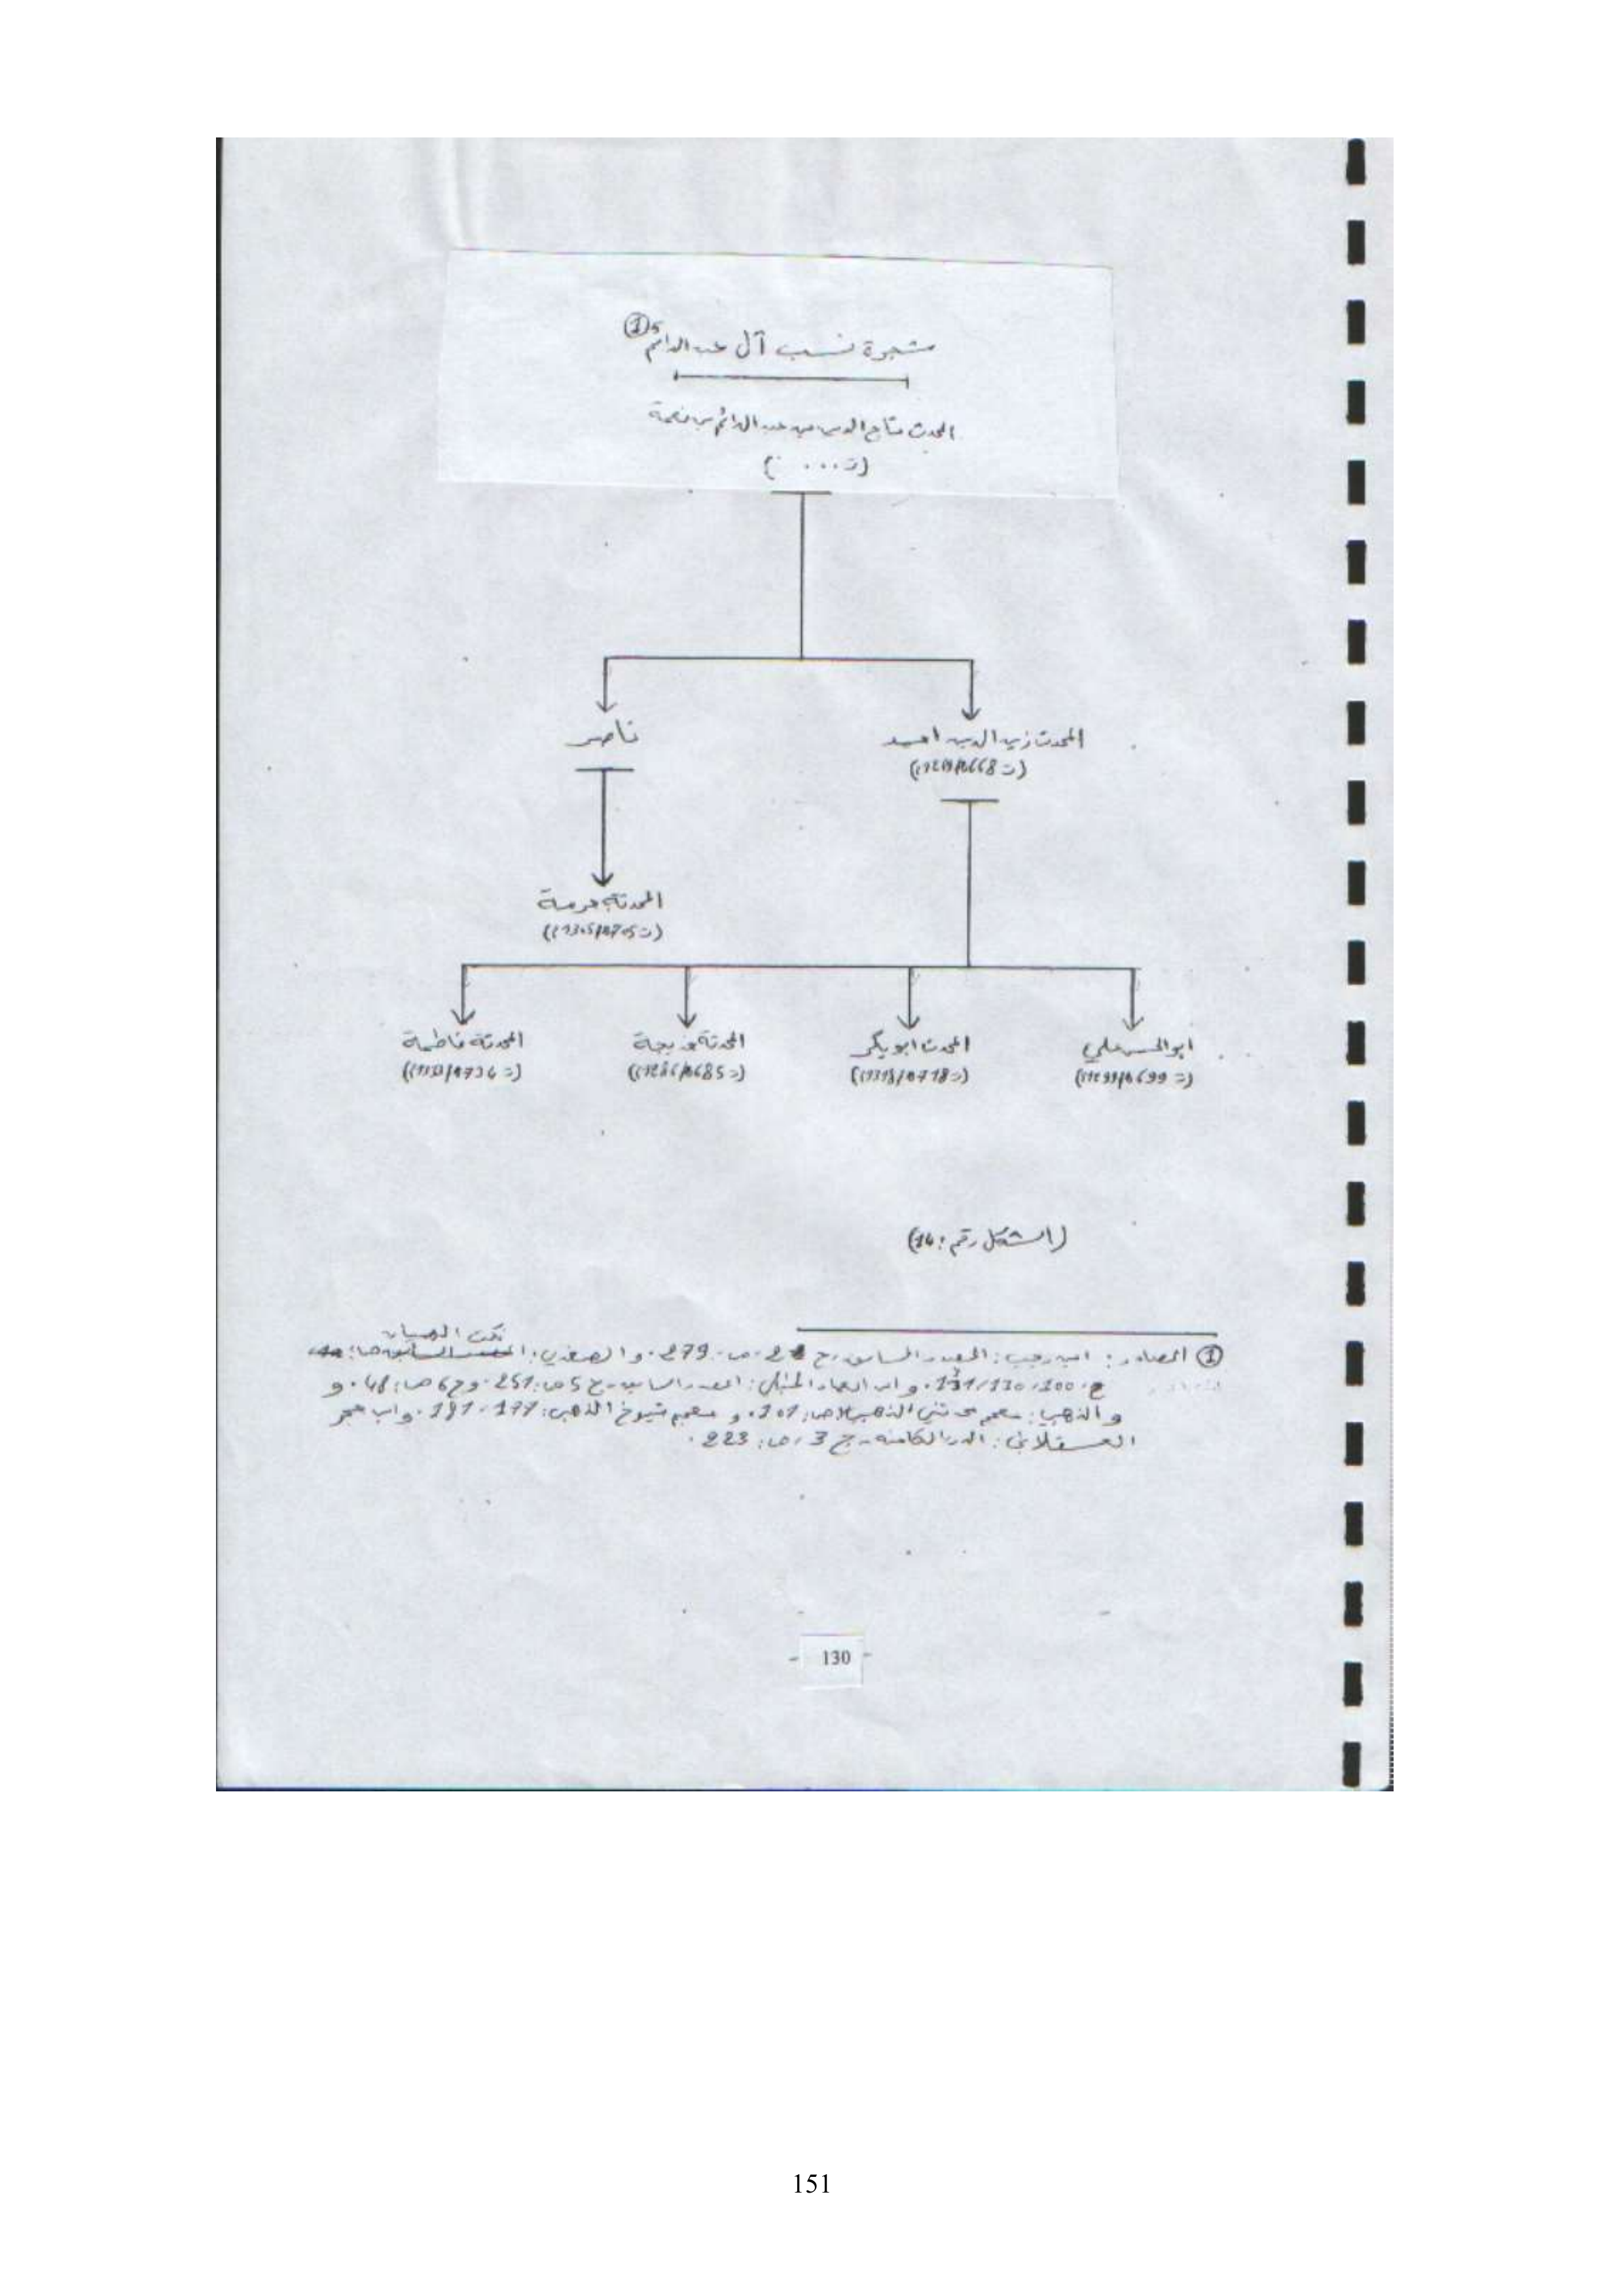 شجرة نسب آل عبد الدائم ①
المحدث تاج الدين عبد الدائم بن نعمة
(ت . . . .)
ناصر
المحدث زين الدين احمد
(ت 668ه/1269م)
المحدثة
(ت 705ه/1305م)
ابو الحسن علي
(ت 699ه/1299م)
المحدث ابو بكر
(ت 718ه/1318م)
المحدثة خديجة
(ت 685ه/1286م)
المحدثة فاطمة
(ت 734ه/1333م)
(الشكل رقم: 14)
نكت الهميان
① المصادر: ابن رجب: المصدر السابق، ج 2، ص: 279. و الصفدي:
ج. 100، 110، 131. و ابن العماد الحنبلي: المصدر السابق، ج 5 ص: 251. و ج 6 ص: 48. و
و الذهبي: معجم محدثي الذهبي، ص: 101. و معجم شيوخ الذهبي: 177، 181. و ابن حجر
العسقلاني: الدرر الكامنة، ج 3، ص: 223.
- 130 -
151